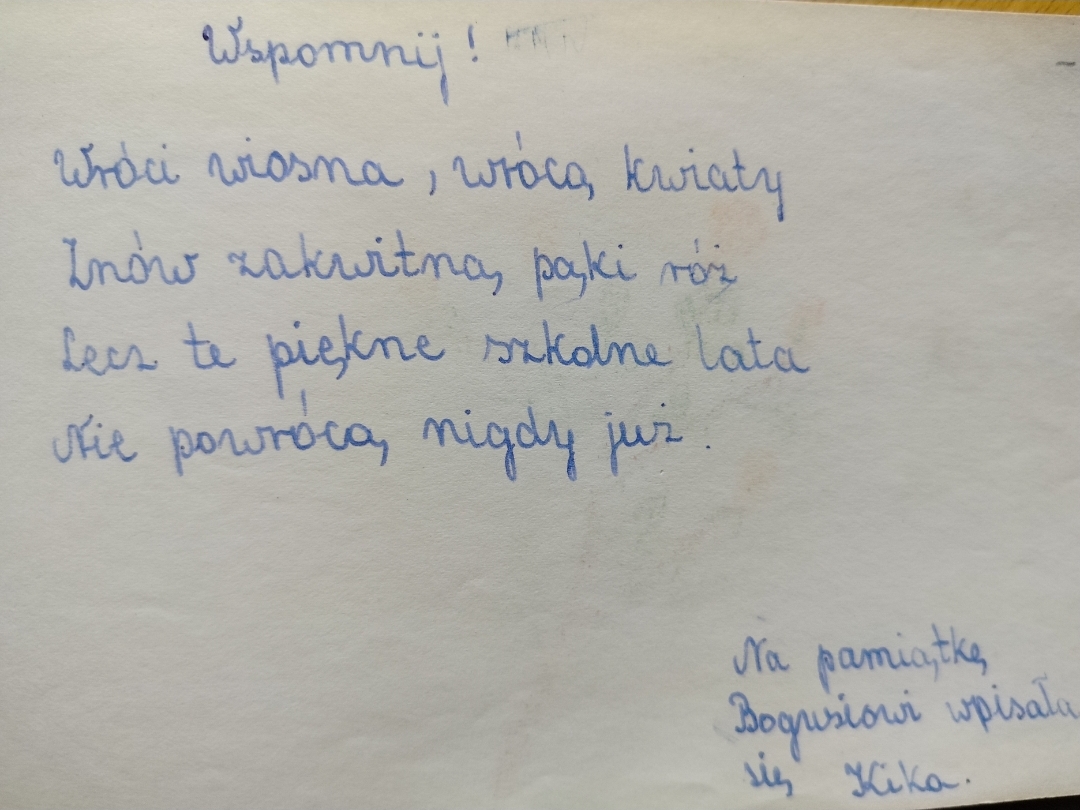 Wspomnij!
Wróci wiosna, wrócą kwiaty
Znów zakwitną pąki róż
Lecz te piękne szkolne lata
Nie powrócą nigdy już.
Na pamiątkę
Bogusiowi wpisała
się Kika.